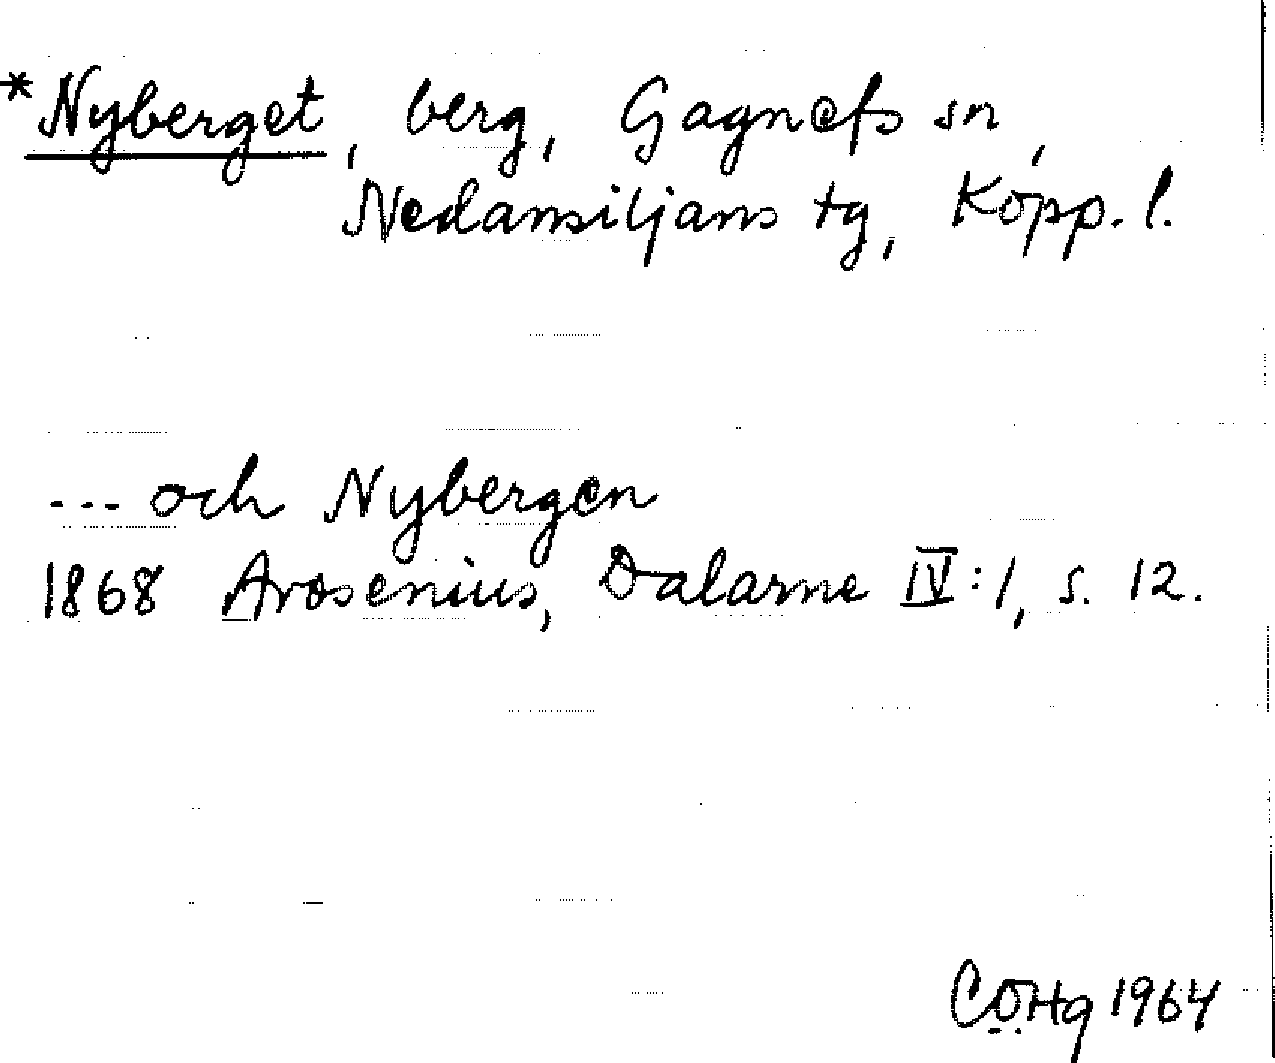 *Nyberget, berg, Gagnefs sn,
Nedansiljans tg, Kopp. l.
... och Nybergen
1868 Arosenius, Dalarne IV:1, s. 12.
CÖHg 1964